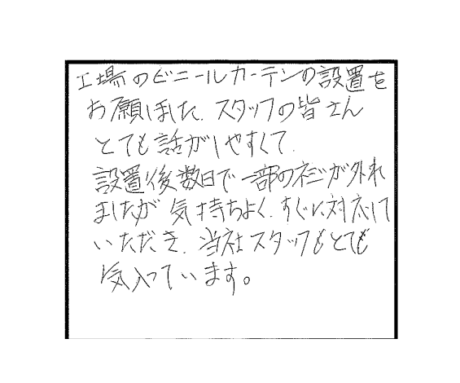 工場のビニールカーテンの設置を
お願いしました. スタッフの皆さん
とても話がしやすくて.
設置後数日で一部のネジが外れ
ましたが 気持ちよく. すぐに対応して
いただき. 当社スタッフもとても
気入っています。